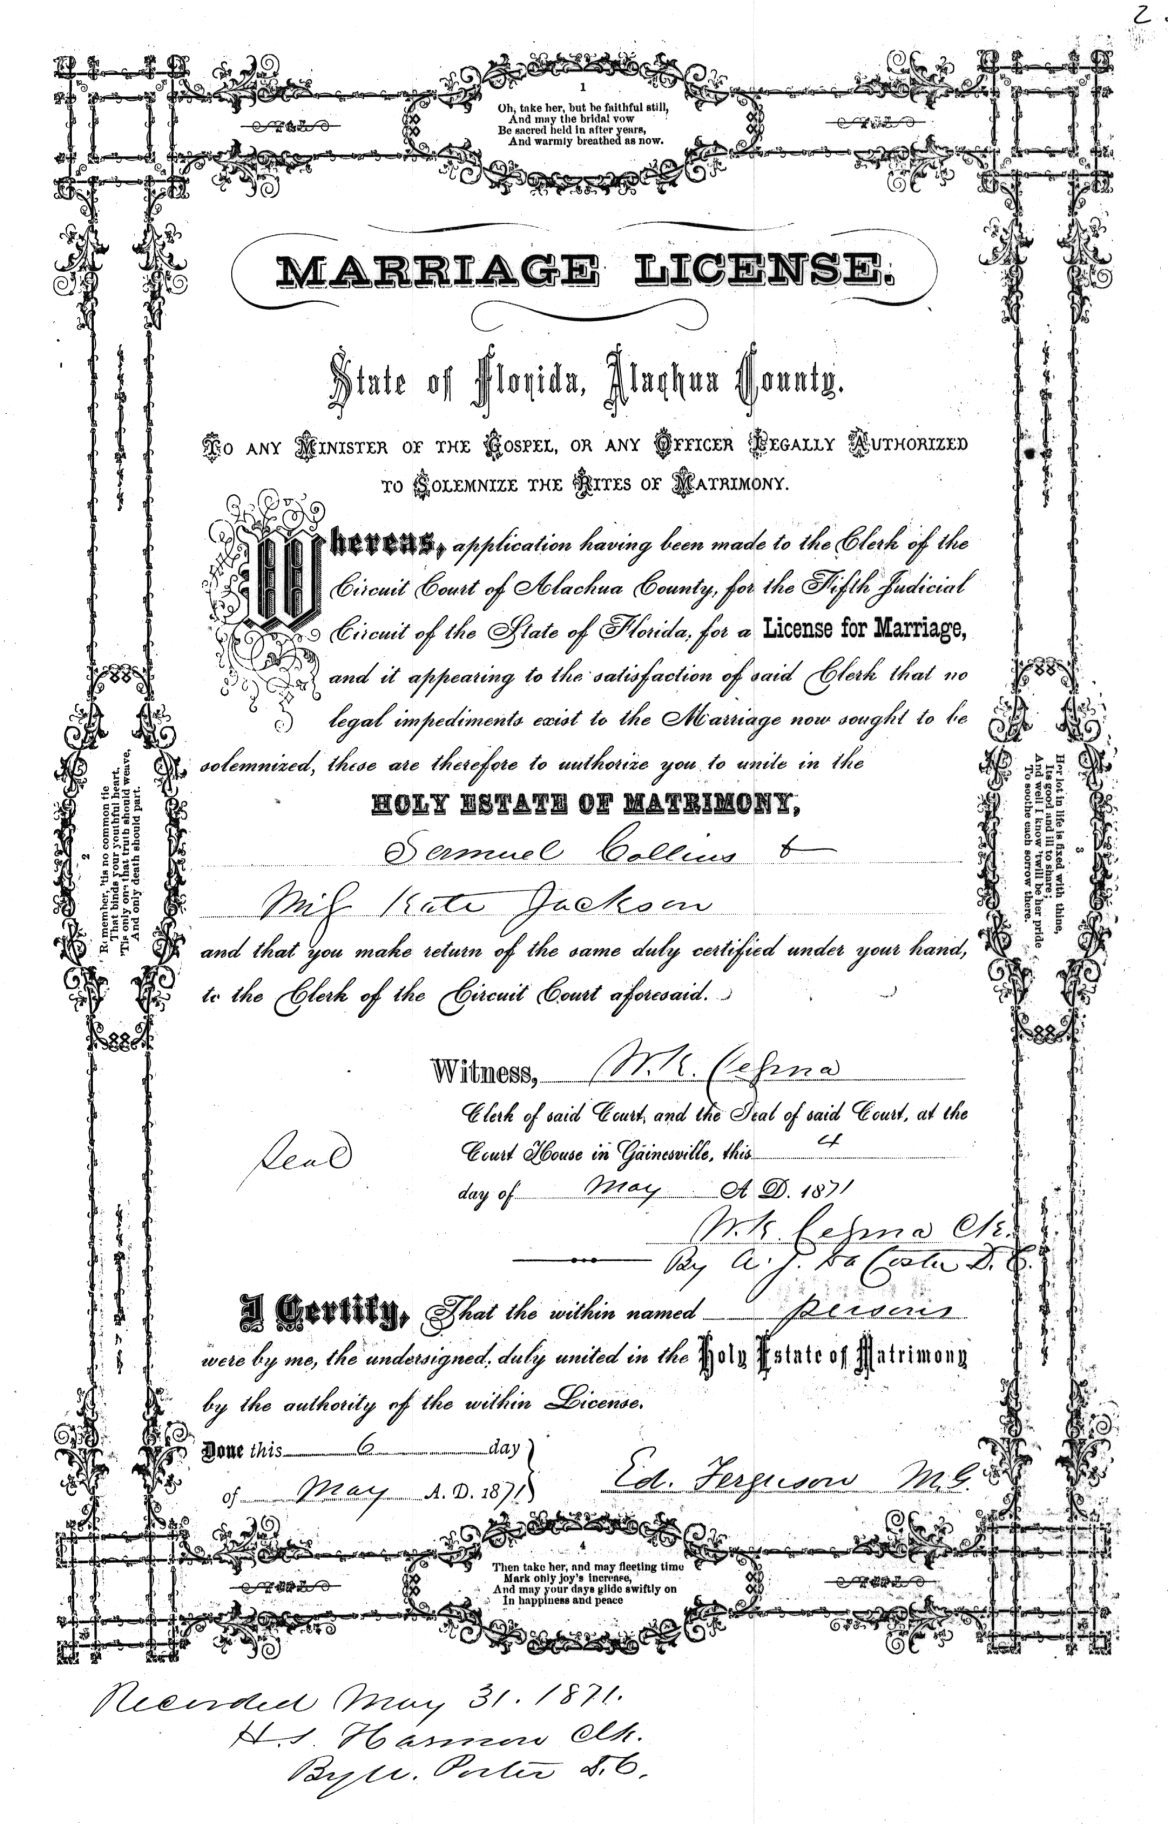 2.
1
Oh, take her, but be faithful still,
And may the bridal vow
Be sacred held in after years,
And warmly breathed as now.
MARRIAGE LICENSE.
State of Florida, Alachua County.
TO ANY MINISTER OF THE GOSPEL, OR ANY OFFICER LEGALLY AUTHORIZED
TO SOLEMNIZE THE RITES OF MATRIMONY.
Whereas, application having been made to the Clerk of the
Circuit Court of Alachua County, for the Fifth Judicial
Circuit of the State of Florida, for a License for Marriage,
and it appearing to the satisfaction of said Clerk that no
legal impediments exist to the Marriage now sought to be
solemnized, these are therefore to authorize you to unite in the
HOLY ESTATE OF MATRIMONY,
Samuel Collins &
Miss Kate Jackson
and that you make return of the same duly certified under your hand,
to the Clerk of the Circuit Court aforesaid.
2
Remember, 'tis no common tie
That binds your youthful heart,
'Tis only one that truth should weave,
And only death should part.
3
Her lot in life is fixed with thine,
Its good and ill to share;
And well I know 'twill be her pride
To soothe each sorrow there.
Witness, W.K. Cessna
Clerk of said Court, and the Seal of said Court, at the
Seal
Court House in Gainesville, this 4
day of May A. D. 1871
W.K. Cessna Clk.
By A. J. Da Costa D. C.
I Certify, That the within named persons
were by me, the undersigned, duly united in the Holy Estate of Matrimony
by the authority of the within License.
Done this 6 day
of May A. D. 1871
Ed. Ferguson M.G.
4
Then take her, and may fleeting time
Mark only joy's increase,
And may your days glide swiftly on
In happiness and peace
Recorded May 31. 1871.
H.S. Harmon Clk.
By Porter D.C.